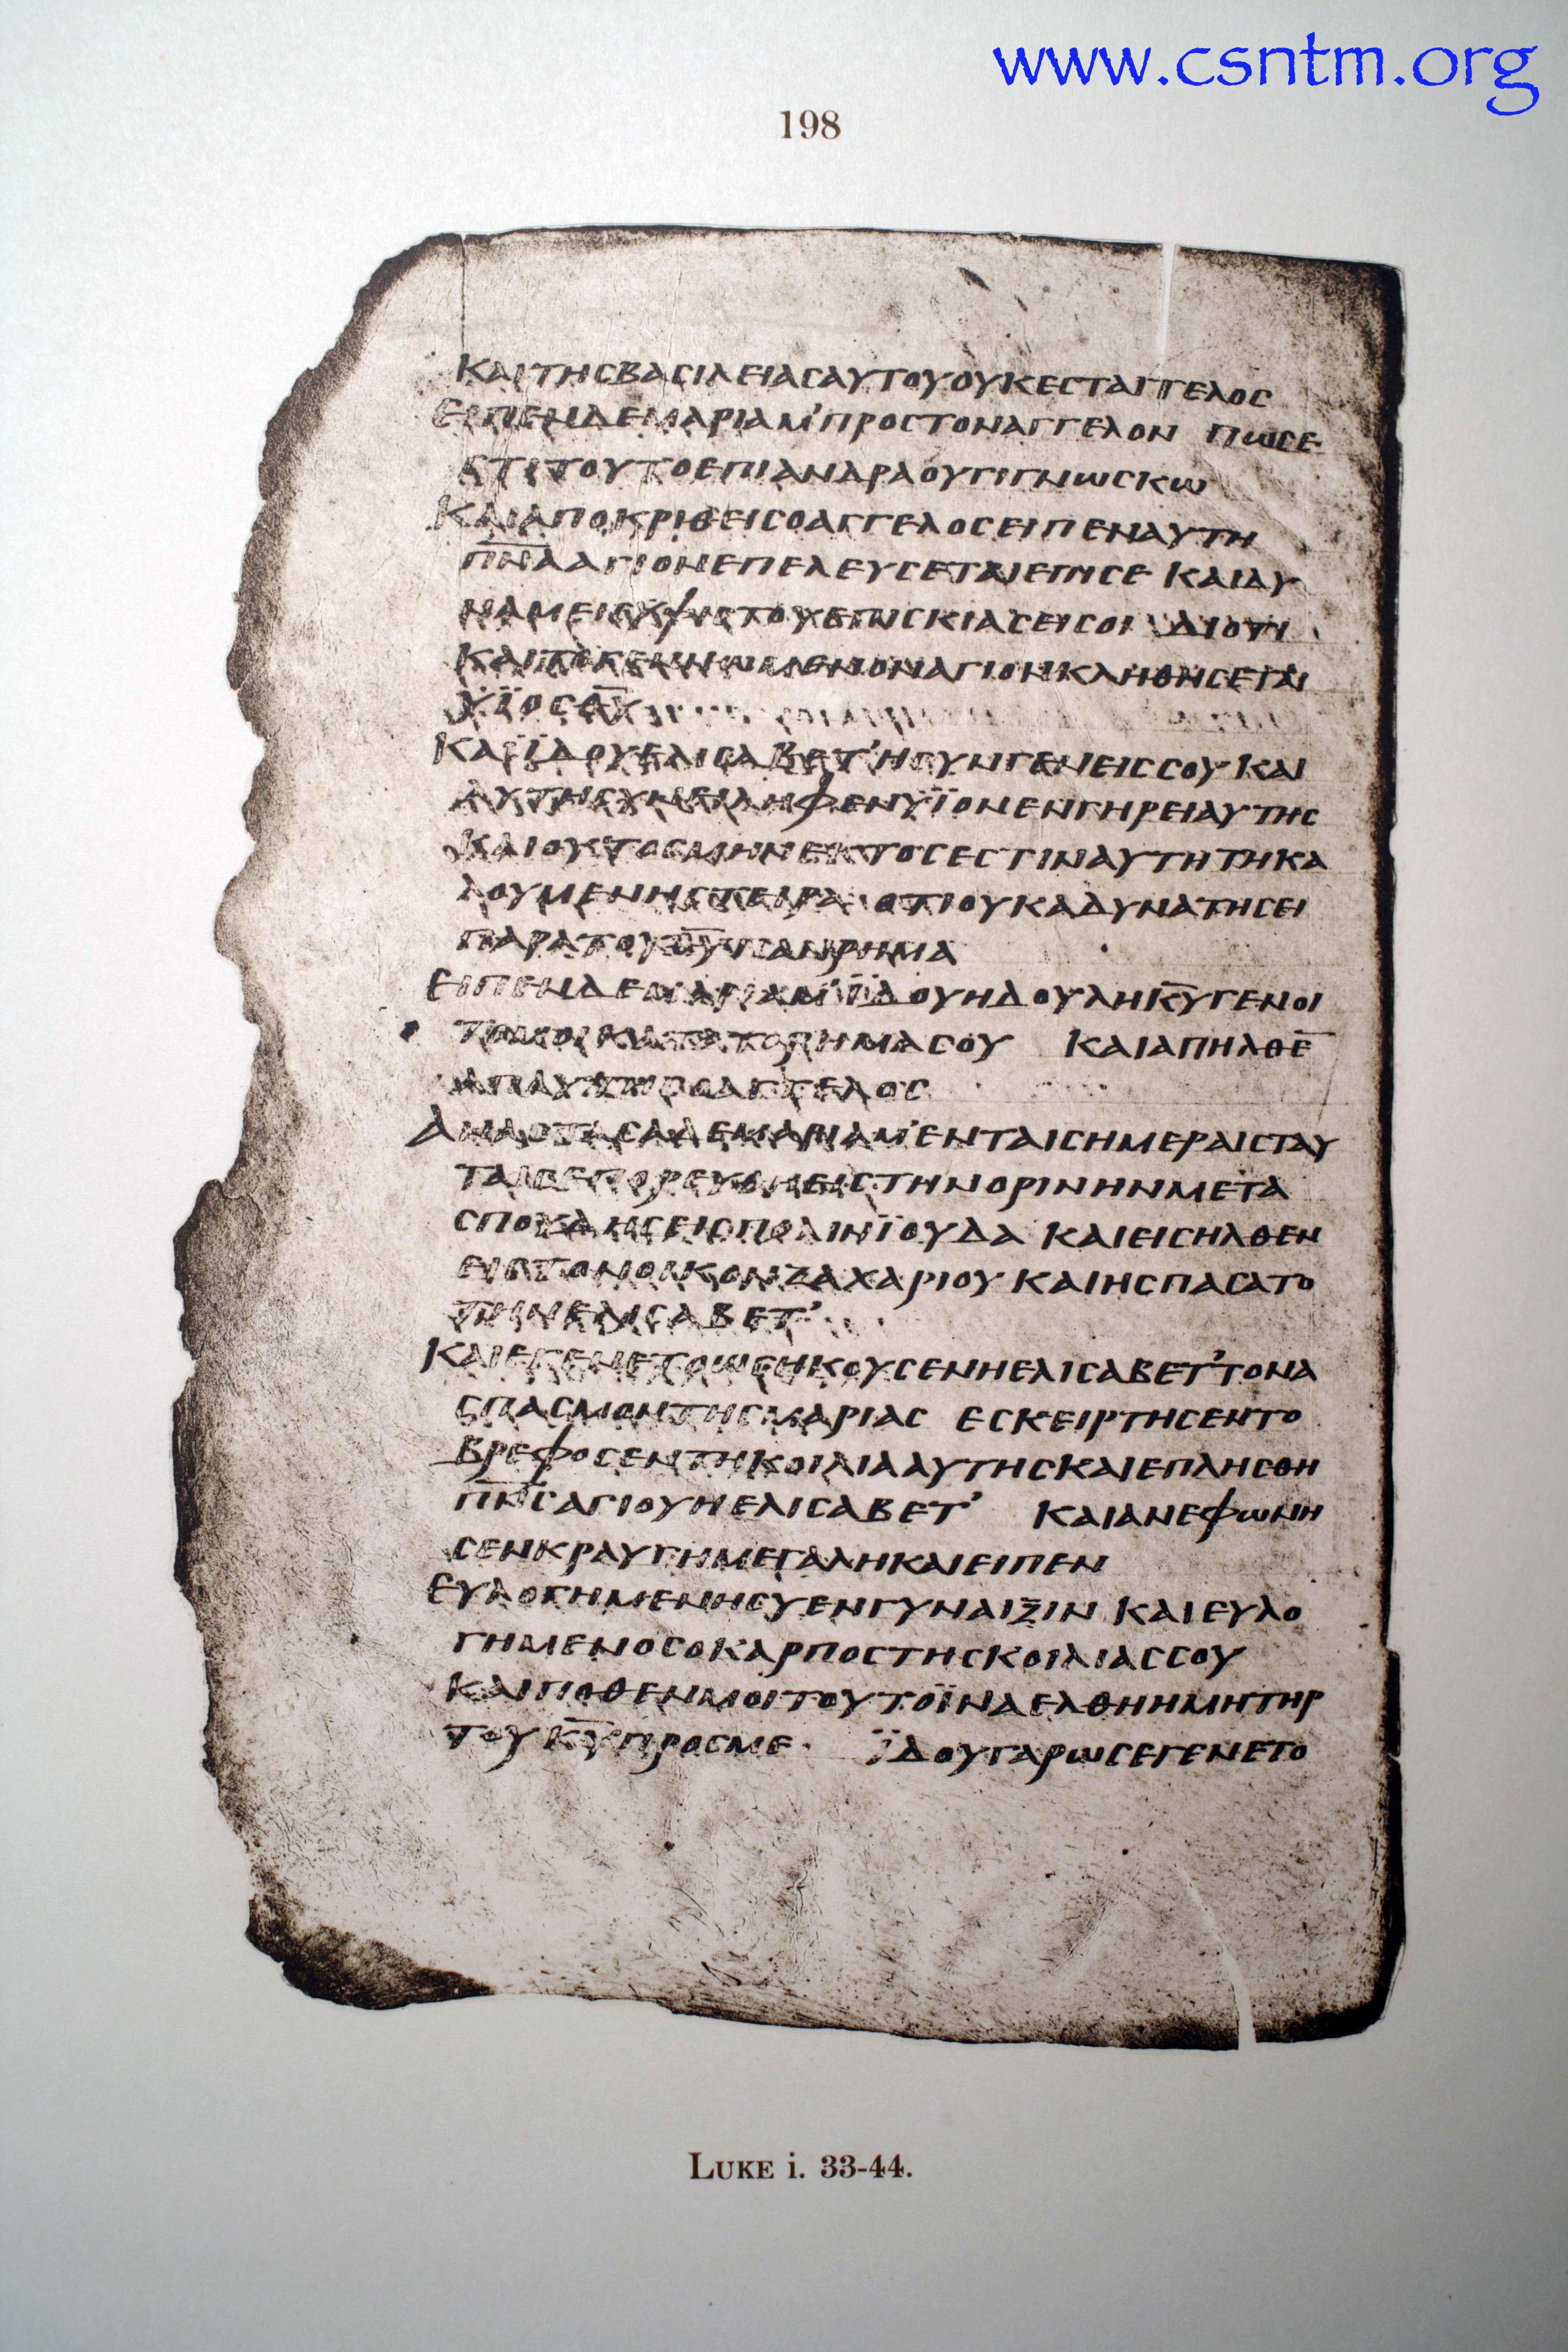 www.csntm.org
198
ΚΑΙΤΗϹΒΑϹΙΛΕΙΑϹΑΥΤΟΥΟΥΚΕϹΤΑΙΤΕΛΟϹ
ΕΙΠΕΝΔΕΜΑΡΙΑΜ’ΠΡΟϹΤΟΝΑΓΓΕΛΟΝ ΠωϹΕ
ϹΤΙΤΟΥΤΟΕΠΙΑΝΔΡΑΟΥΓΙΓΝωϹΚω
ΚΑΙΑΠΟΚΡΙΘΕΙϹΟΑΓΓΕΛΟϹΕΙΠΕΝΑΥΤΗ
Π̅Ν̅ΑΑΓΙΟΝΕΠΕΛΕΥϹΕΤΑΙΕΠΙϹΕ ΚΑΙΔΥ
ΝΑΜΕΙϹΥΨΙϹΤΟΥΕΠΙϹΚΙΑϹΕΙϹΟΙ ΔΙΟΤΙ
ΚΑΙΤΟΓΕΝΝωΜΕΝΟΝΑΓΙΟΝΚΛΗΘΗϹΕΤΑΙ
ΫΪΟϹΘ̅Υ̅
ΚΑΙΪΔΟΥΕΛΙϹΑΒΕΤ’ΗϹΥΝΓΕΝΕΙϹϹΟΥ ΚΑΙ
ΑΥΤΗϹΥΝΕΙΛΗΦΕΝΫΪΟΝΕΝΓΗΡΕΙΑΥΤΗϹ
ΚΑΙΟΥΤΟϹΜΗΝΕΚΤΟϹΕϹΤΙΝΑΥΤΗΤΗΚΑ
ΛΟΥΜΕΝΗϹΤΕΙΡΑ ΟΤΙΟΥΚΑΔΥΝΑΤΗϹΕΙ
ΠΑΡΑΤΟΥΘ̅Υ̅ΠΑΝΡΗΜΑ
ΕΙΠΕΝΔΕΜΑΡΙΑΜ’ΪΔΟΥΗΔΟΥΛΗΚ̅Υ̅ΓΕΝΟΙ
ΤΟΜΟΙΚΑΤΑΤΟΡΗΜΑϹΟΥ ΚΑΙΑΠΗΛΘΕ̅
ΑΠΑΥΤΗϹΟΑΓΓΕΛΟϹ
ΑΝΑϹΤΑϹΑΔΕΜΑΡΙΑΜ’ΕΝΤΑΙϹΗΜΕΡΑΙϹΤΑΥ
ΤΑΙϹΕΠΟΡΕΥΘΗΕΙϹΤΗΝΟΡΙΝΗΝΜΕΤΑ
ϹΠΟΥΔΗϹΕΙϹΠΟΛΙΝΪΟΥΔΑ ΚΑΙΕΙϹΗΛΘΕΝ
ΕΙϹΤΟΝΟΙΚΟΝΖΑΧΑΡΙΟΥΚΑΙΗϹΠΑϹΑΤΟ
ΤΗΝΕΛΙϹΑΒΕΤ’
ΚΑΙΕΓΕΝΕΤΟωϹΗΚΟΥϹΕΝΗΕΛΙϹΑΒΕΤ’ΤΟΝΑ
ϹΠΑϹΜΟΝΤΗϹΜΑΡΙΑϹ ΕϹΚΕΙΡΤΗϹΕΝΤΟ
ΒΡΕΦΟϹΕΝΤΗΚΟΙΛΙΑΑΥΤΗϹΚΑΙΕΠΛΗϹΘΗ
Π̅Ν̅ϹΑΓΙΟΥΗΕΛΙϹΑΒΕΤ’ ΚΑΙΑΝΕΦωΝΗ
ϹΕΝΚΡΑΥΓΗΜΕΓΑΛΗΚΑΙΕΙΠΕΝ
ΕΥΛΟΓΗΜΕΝΗϹΥΕΝΓΥΝΑΙΞΙΝ ΚΑΙΕΥΛΟ
ΓΗΜΕΝΟϹΟΚΑΡΠΟϹΤΗϹΚΟΙΛΙΑϹϹΟΥ
ΚΑΙΠΟΘΕΝΜΟΙΤΟΥΤΟΪΝΑΕΛΘΗΗΜΗΤΗΡ
ΤΟΥΚ̅Υ̅ΠΡΟϹΜΕ ΪΔΟΥΓΑΡωϹΕΓΕΝΕΤΟ
LUKE i. 33-44.